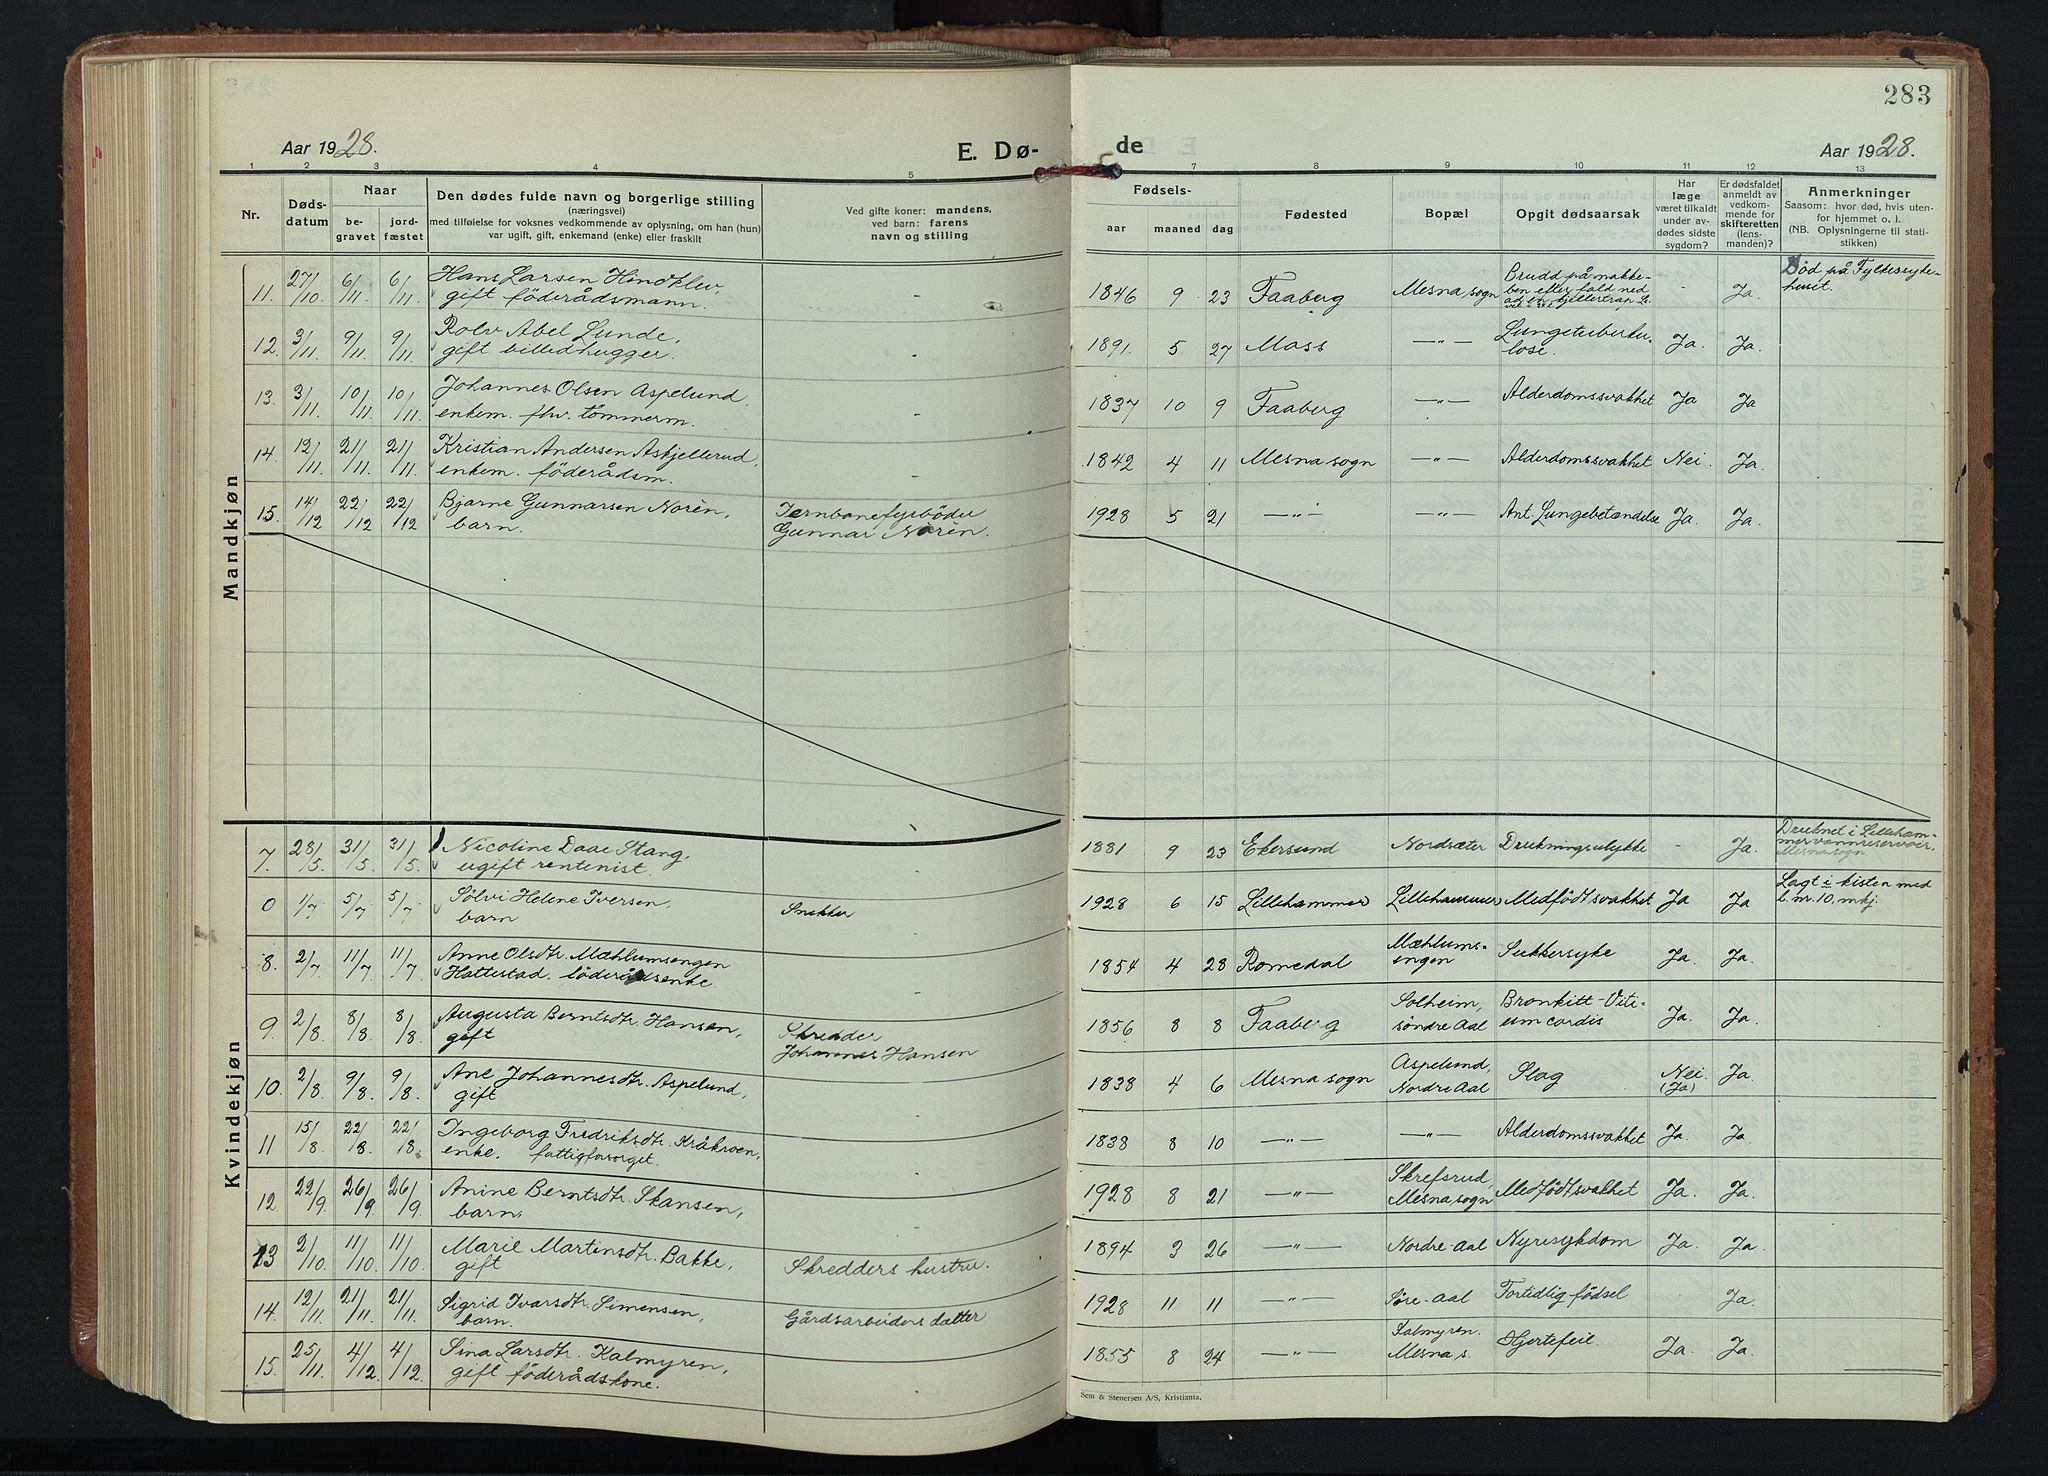 283
Aar 1928.
E. Dø-
de
Aar 1928.
1 2 3 4 5 7 8 9 10 11 12 13
Nr.
Døds-
datum
Naar
be-
gravet
jord-
fæstet
Den dødes fulde navn og borgerlige stilling
(næringsvei)
med tilføielse for voksnes vedkommende av oplysning, om han (hun)
var ugift, gift, enkemand (enke) eller fraskilt
Ved gifte koner: mandens,
ved barn: farens
navn og stilling
Fødsels-
aar maaned dag
Fødested
Bopæl
Opgit dødsaarsak
Har
læge
været tilkaldt
under av-
dødes sidste
sygdom?
Er dødsfaldet
anmeldt av
vedkom-
mende for
skifteretten
(lens-
manden)?
Anmerkninger
Saasom: hvor død, hvis uten-
for hjemmet o. l.
(NB. Oplysningerne til stati-
stikken)
Mandkjøn
11. 27/10 6/11. 6/11. Hans Larsen Hindklev, gift föderådsmann. - 1846 9 23 Faaberg Mesna sogn Brudd på nakke-
ben efter fald ned
- Ja. Död på Fylkessyke-
huset.
12. 3/11. 9/11. 9/11. Rolv Abel Lunde, gift billedhugger. - 1891. 5 27 Moss —„— Lungetuberku-
lose. Ja. Ja.
13. 3/11. 10/11. 10/11. Johannes Olsen Aspelund, enkem. fhv. tömmerm. - 1837 10 9 Faaberg —„— Alderdomssvakhet Ja Ja
14. 12/11. 21/11. 21/11. Kristian Andersen Askjellerud, enkem. föderådsm. - 1842 4 11 Mesna sogn —„— Alderdomssvakhet Nei. Ja.
15. 14/12 22/12 22/12 Bjarne Gunnarsen Norèn, barn. Jernbanefyrböder
Gunnar Norèn. 1928 5 21 —„— —„— Ant. Lungebetændelse Ja. Ja.
Kvindekjøn
7. 28/5. 31/5. 31/5. Nicoline Daae Stang, ugift rentenist. 1881 9 23 Ekersund Nordsæter Drukningsulykke - Ja. Druknet i Lilleham-
mer vannreservoir,
Mesna sogn
0 1/7 5/7 5/7 Sölvi Helene Iversen, barn Snekker 1928 6 15 Lillehammer Lillehammer Medfödt svakhet Ja Ja Lagt i kisten med
l. nr. 10. mkj.
8. 2/7 11/7 11/7 Anne Olsdtr. Mæhlumsengen
Hattestad, föderådsenke. 1854 4 28 Romedal Mæhlums-
engen Sukkersyke Ja. Ja.
9. 2/8 8/8 8/8. Augusta Berntsdtr. Hansen, gift Skredder
Johannes Hansen 1856 8 8 Faaberg Solheim,
söndre Aal Bronkitt-Viti-
um cordis Ja. Ja.
10. 2/8. 9/8. 9/8. Ane Johannesdtr. Aspelund, gift 1838 4 6 Mesna sogn Aspelund,
Nordre Aal Slag Nei.
(Ja) Ja.
11 15/8 22/8. 22/8. Ingeborg Fredriksdtr. Kråkroen, enke. fattigforsørget. 1838 8 10 —„— —„— Alderdomssvakhet Ja. Ja.
12. 22/9 26/9 26/9 Anine Berntsdtr. Skansen, barn. 1928 8 21 —„— Skrefsrud,
Mesna sogn Medfödt svakhet Ja. Ja.
13 2/10. 11/10. 11/10 Marie Martinsdtr. Bakke, gift Skredders hustru. 1894 3 26 —„— Nordre-Aal Nyresykdom Ja. Ja.
14. 12/11. 21/11. 21/11. Sigrid Ivarsdtr. Simensen, barn. Gårdsarbeiders datter 1928 11 11 —„— Söre-Aal Fortidlig födsel Ja.
15. 25/11. 4/12 4/12 Sina Larsdtr. Kalmyren, gift föderådskone. 1855 8 24 —„— Kalmyren.
Mesna s. Hjertefeil. Ja. Ja.
Sem & Stenersen A/S, Kristiania.